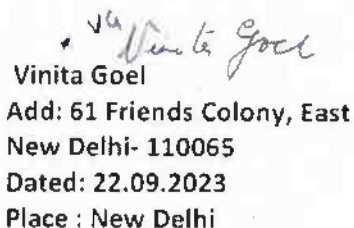 Vinita Goel
Vinita Goel
Add: 61 Friends Colony, East
New Delhi- 110065
Dated: 22.09.2023
Place : New Delhi